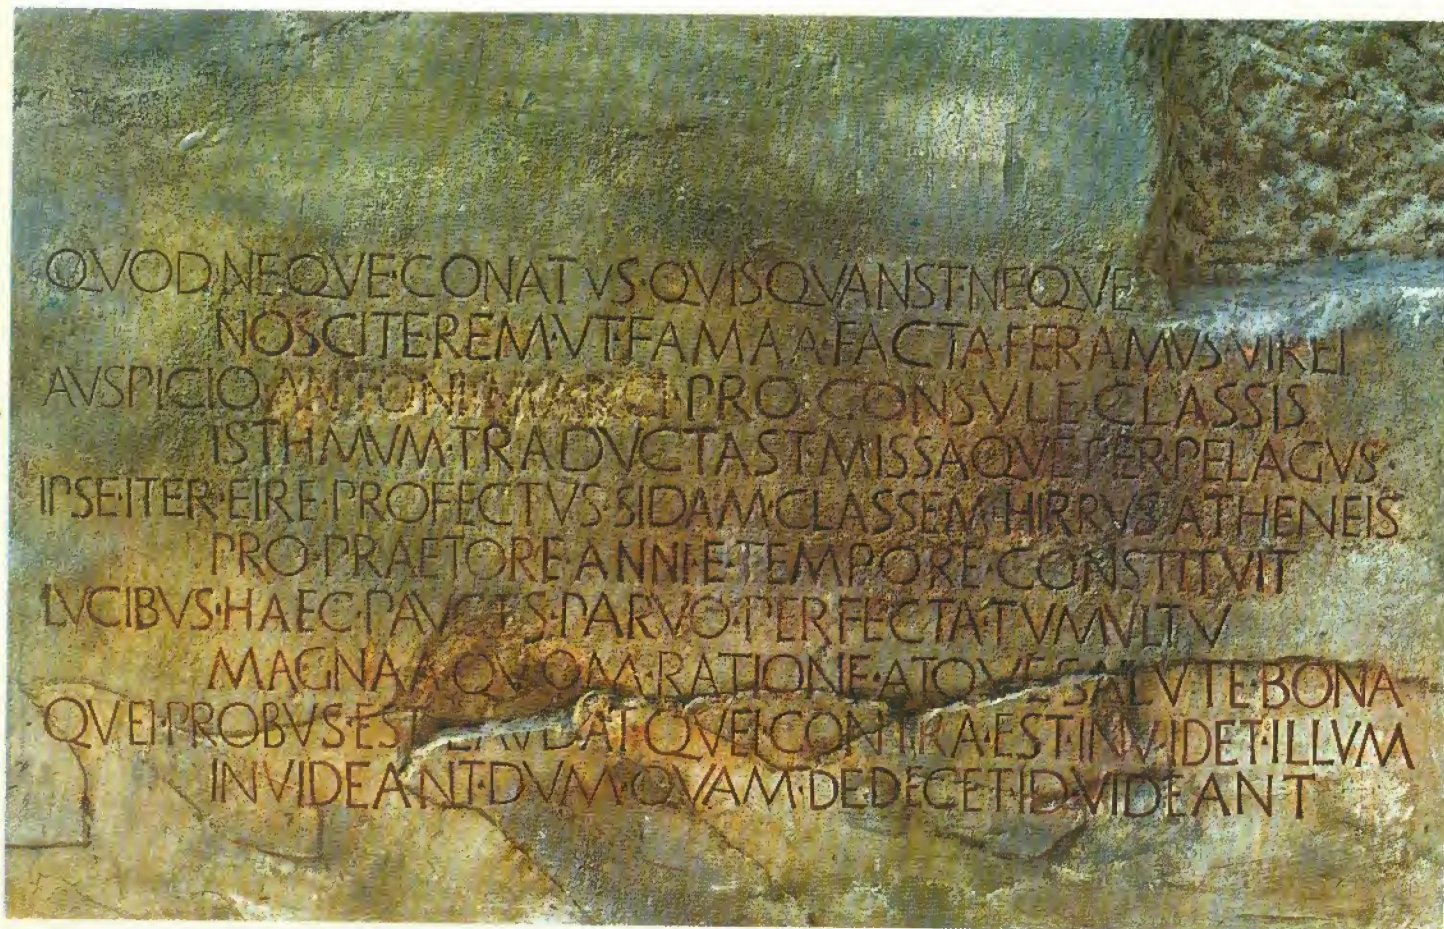 QVOD·NEQVE·CONATVS·QVISQVANST·NEQVE
NOSCITE·REM·VT·FAMAA·FACTA·FERAMVS·VIREI
AVSPICIO·ANTONI·MARCI·PRO·CONSVLE·CLASSIS
ISTHMVM·TRADVCTAST·MISSAQVE·PER·PELAGVS·
IPSE·ITER·EIRE·PROFECTVS·SIDAM·CLASSEM·HIRRVS·ATHENEIS
PRO·PRAETORE·ANNI·E·TEMPORE·CONSTITVIT
LVCIBVS·HAEC·PAVCEIS·PARVO·PERFECTA·TVMVLTV
MAGNA·AQVOM·RATIONE·ATQVE·SALVTE·BONA
QVEI·PROBVS·EST·LAVDAT·QVEI·CONTRA·EST·INVIDET·ILLVM
INVIDEANT·DVM·QVAM·DEDECET·ID·VIDEANT